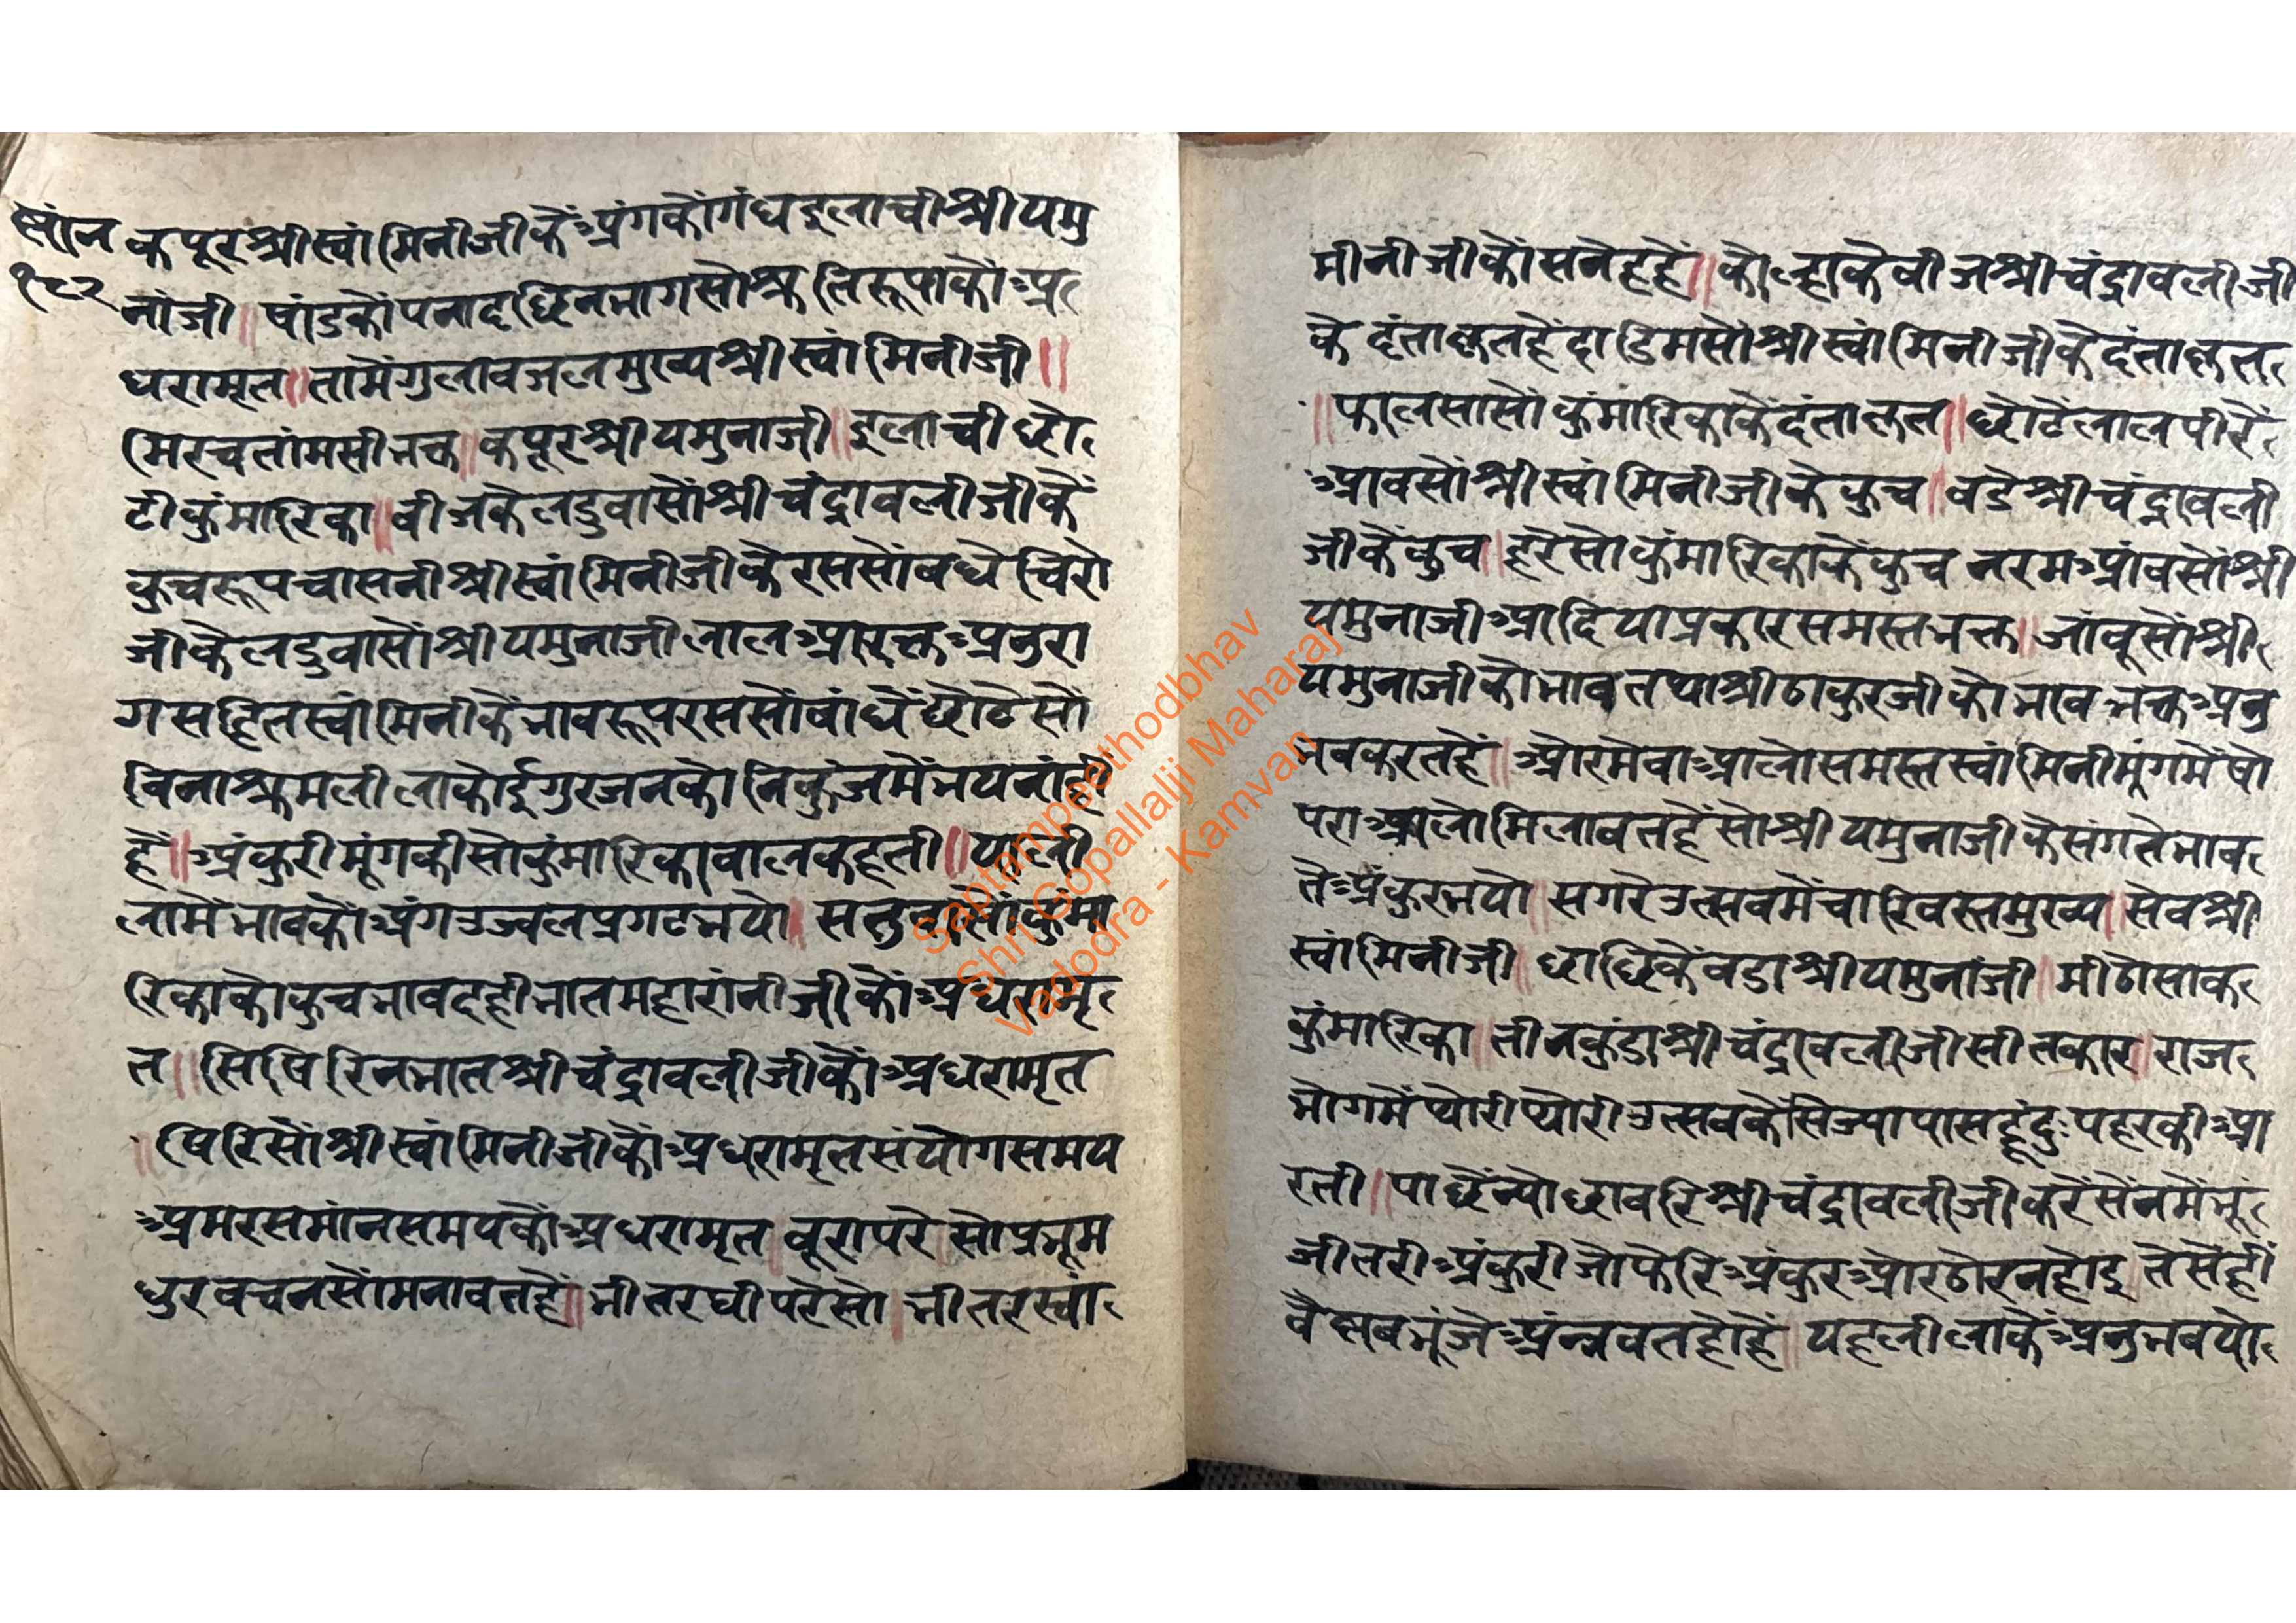 ष्वांन
१८२
कपूरश्रीस्वांमिनीजीकैंअंगकौगंधइलाचीश्रीयमु
नांजी॥षांडकौंपनादछिनभागसोश्रुतिरूपाकौंअ
धरामृत॥तामैंगुलाबजलमुख्यश्रीस्वांमिनीजी॥
मिरचतांमसीभक्त॥कपूरश्रीयमुनाजी॥इलाचीछो
टीकुंमारिका॥बीजकेलडुवासौंश्रीचंद्रावलीजीकैं
कुचरूपचासनीश्रीस्वांमिनीजीकेरससोंबधेचिरो
जीकेलडुवासौंश्रीयमुनाजीलालआरक्तअनुरा
गसहितस्वांमिनीकैंभावरूपरससौंबांधेंछोटेसो
विनाश्रमलीलाकोईगुरजनकोनिकुंजमैंभयनांही
हैं॥अंकुरीमूंगकीसोकुंमारिकाबालकहती॥
लामैंभावकौंअंगउज्वलप्रगटभयो॥सतुवासोंकुंमा
रिकाकौकुचभावदहीभातमहारांनीजीकौंअधरामृ
त॥सिषिरिनभातश्रीचंद्रावलीजीकौंअधरामृत
॥षिरिसौंश्रीस्वांमिनीजीकौंअधरामृतसंयोगसमय
अमरसमांनसमयकौंअधरामृत॥बूरापरेसोप्रभूम
धुरवचनसोंमनावतहें॥भीतरघीपरेसो॥भीतरस्वां
मीनीजीकौंसनेहहैं॥कोल्हाकेबीजश्रीचंद्रावलीजी
के दंताक्षतहैंदाडिमसोंश्रीस्वांमिनीजीकेदंताक्षत
॥फालसासोंकुंमारिकाकेंदंताक्षत॥छोटेलालपीरें
आवसोंश्रीस्वांमिनीजीकेकुच॥बडेश्रीचंद्रावली
जीकेंकुच॥हरेसोकुंमारिकाकेंकुच नरमआंवसोंश्री
यमुनाजीआदियाप्रकारसमस्तभक्त॥जांबूसोंश्री
यमुनाजीकोभावतथाश्रीठाकुरजीकोभावभक्तअनु
भवकरतहें॥औरमेवाआलोसमस्तस्वांमिनीमूंगमेंषो
पराआलोमिलावतहैंसोश्रीयमुनाजीकेसंगतेभाव
तेअंकुरभयो॥सगरेउत्सवमेंचारिवस्तमुख्य॥सेवश्री
स्वांमिनीजी॥छाछिकेंवडाश्रीयमुनांजी॥मीठोसाक
कुंमारिका॥तीनकुंडाश्रीचंद्रावलीजीसीतकार॥राज
भोगमेंप्योरीप्योरीउत्सवकेंसिज्यापासहूंदुःपहरकीआ
रती॥पाछेंन्योछावरिश्रीचंद्रावलीजीकरेंसेंनमेंभू
जीतरीअंकुरीजोफेरिअंकुरऔरठोरनहोइ॥तेसेहीं
वैष्णवभूंजेअंन्नवतहोहें॥यहलीलाकेंअनुभवयो